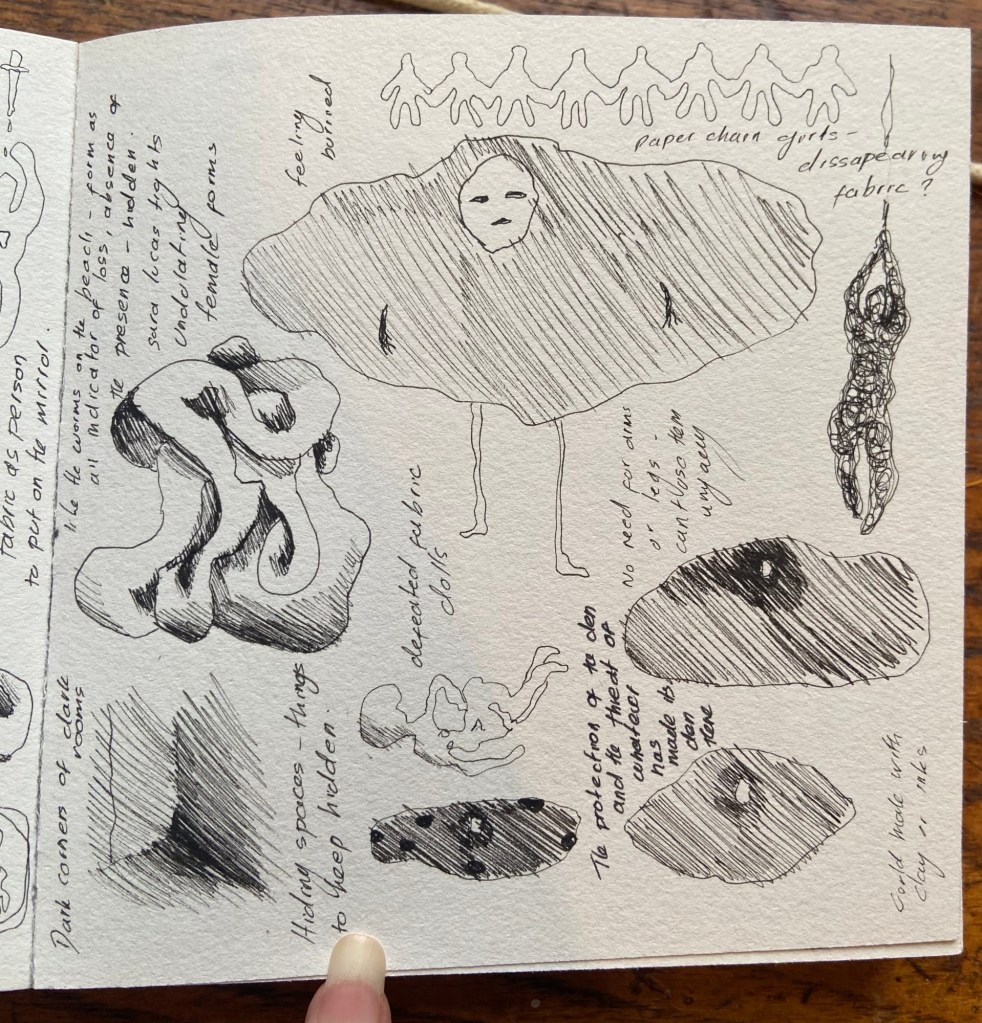 fabric as person
to put on the mirror.
like the worms on the beach - form as
an indicator of loss, absence of
the presence - hidden.
sara lucas tights
undolating
female forms
feeling
burried
paper chain girls -
dissapearing
fabric?
No need for arms
or legs -
can't use them
anyway
defeated fabric
dolls
Dark corners of dark
rooms
Hiding spaces - things
to keep hidden.
The protection of the den
and the threat of
whatever
has
made its
den
there
Could made with
clay
inks